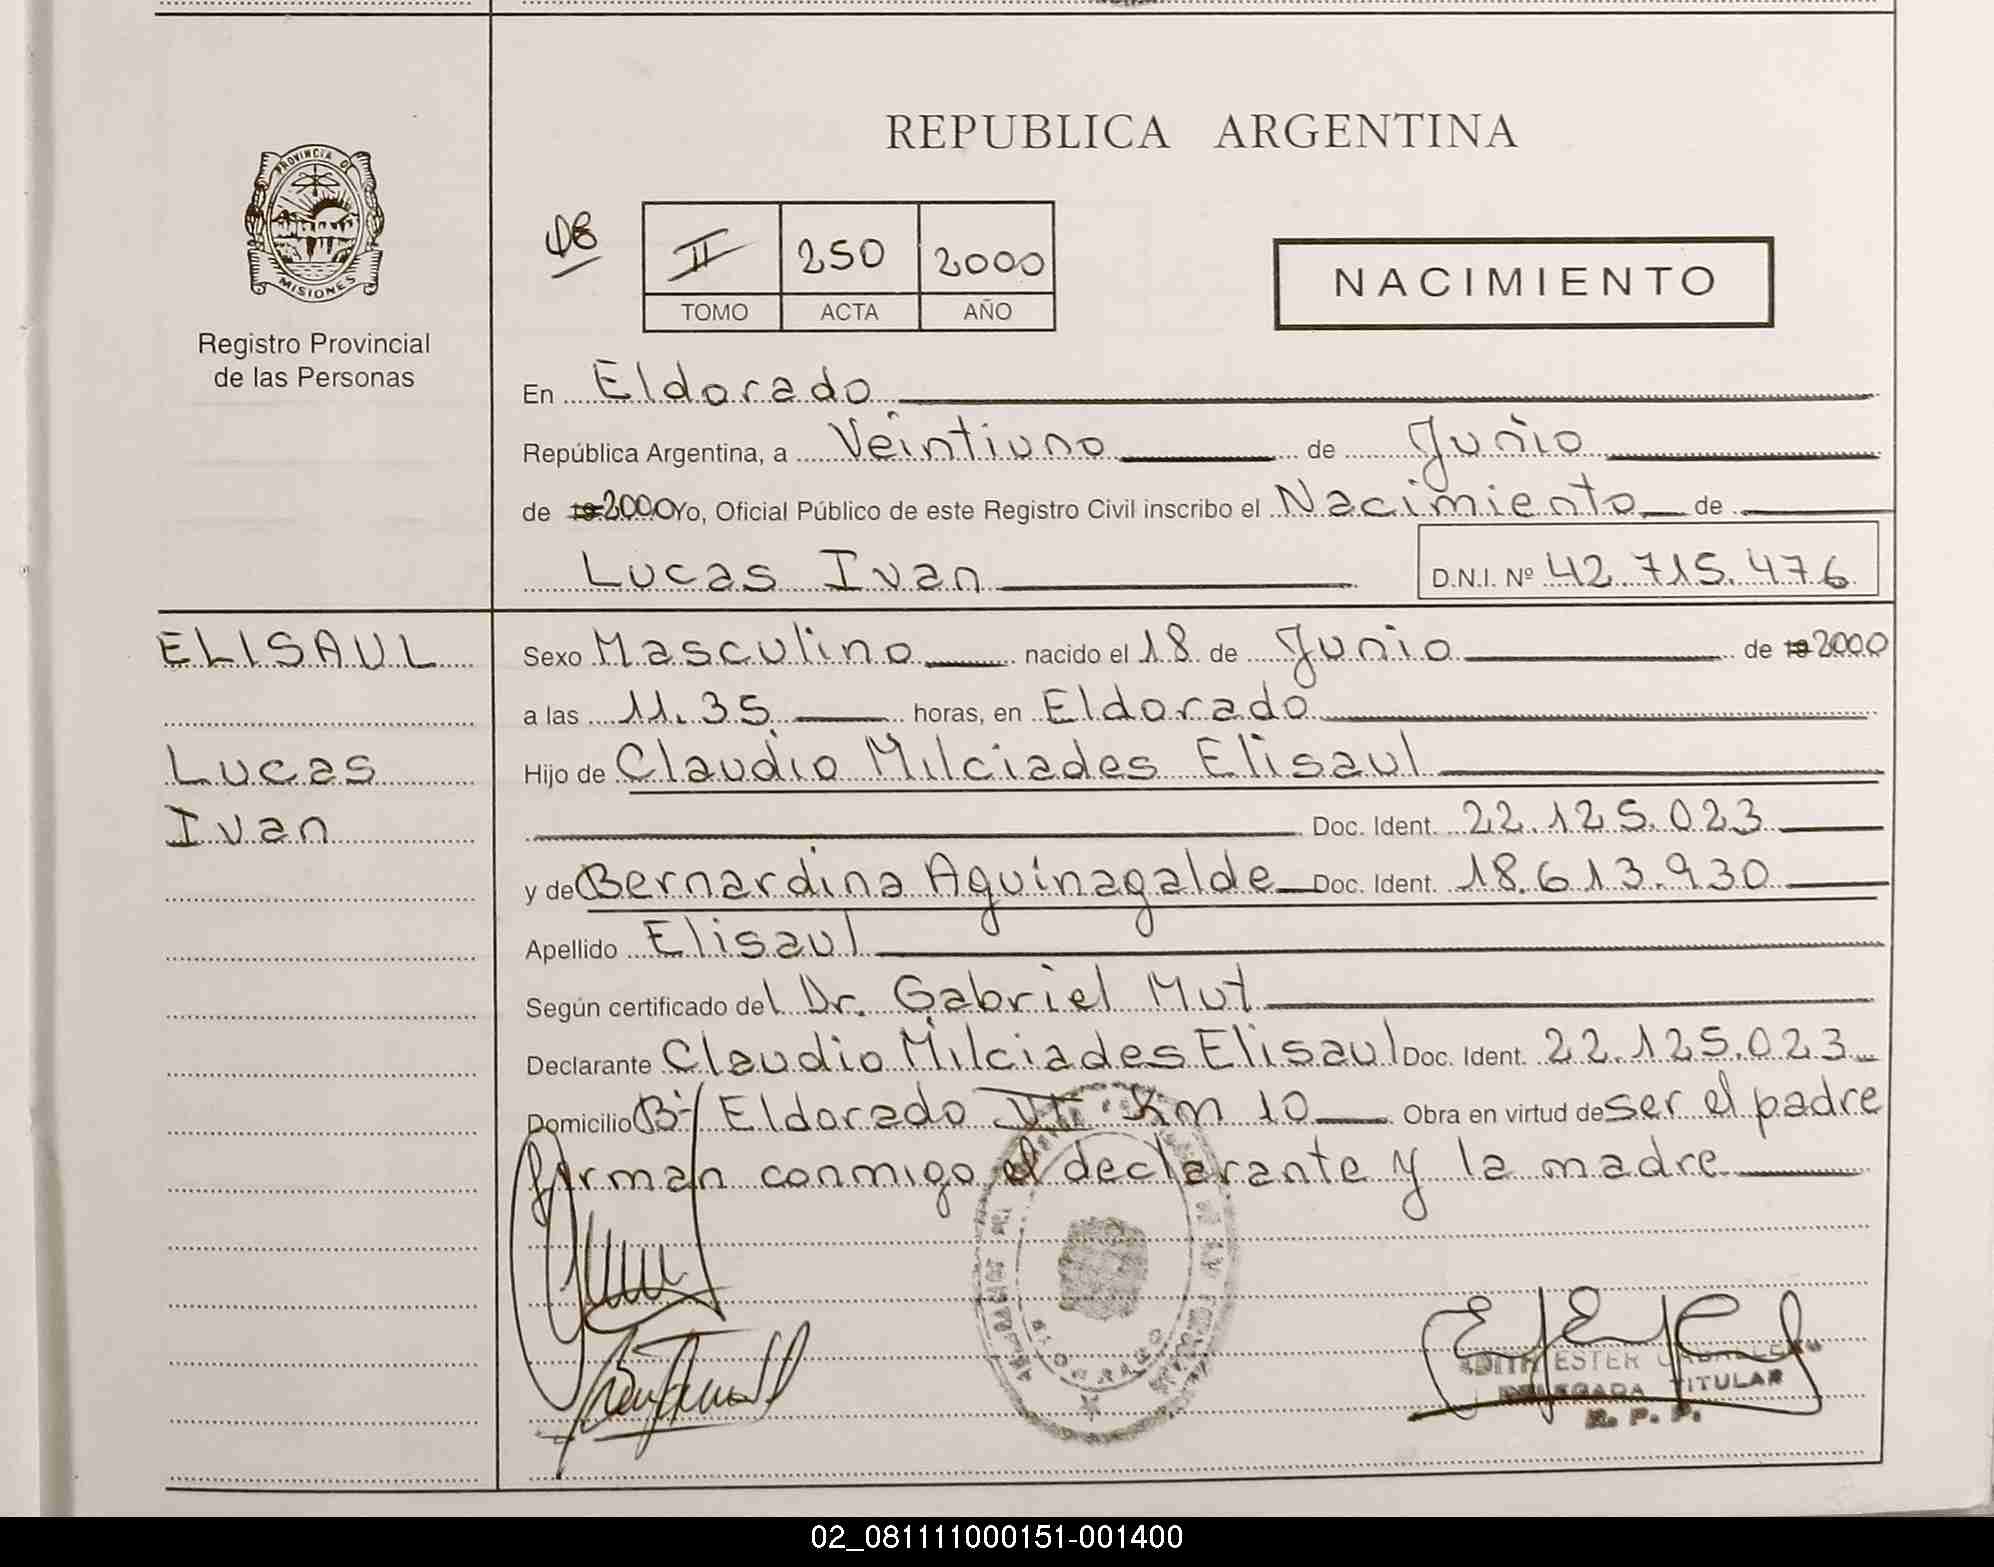 REPUBLICA ARGENTINA
PROVINCIA DE
MISIONES
Registro Provincial
de las Personas
II 250 2000
TOMO ACTA AÑO
NACIMIENTO
En Eldorado
República Argentina, a Veintiuno de Junio
de 19 2000 Yo, Oficial Público de este Registro Civil inscribo el Nacimiento de
Lucas Ivan D.N.I. Nº 42.715.476
ELISAUL
Lucas
Ivan
Sexo Masculino nacido el 18 de Junio de 19 2000
a las 11.35 horas, en Eldorado
Hijo de Claudio Milciades Elisaul
Doc. Ident. 22.125.023
y de Bernardina Aguinagalde Doc. Ident. 18.613.930
Apellido Elisaul
Según certificado del Dr. Gabriel Mut
Declarante Claudio Milciades Elisaul Doc. Ident. 22.125.023
Domicilio Bº Eldorado VI Km 10 Obra en virtud de ser el padre
firman conmigo el declarante y la madre
ELDORADO
EDITH ESTER CABALLERO
DELEGADA TITULAR
R. P. P.
02_081111000151-001400